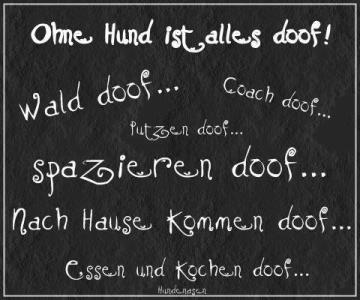 Ohne Hund ist alles doof!
Wald doof...
Coach doof...
Putzen doof...
spazieren doof...
Nach Hause kommen doof...
Essen und kochen doof...
Hundenasen